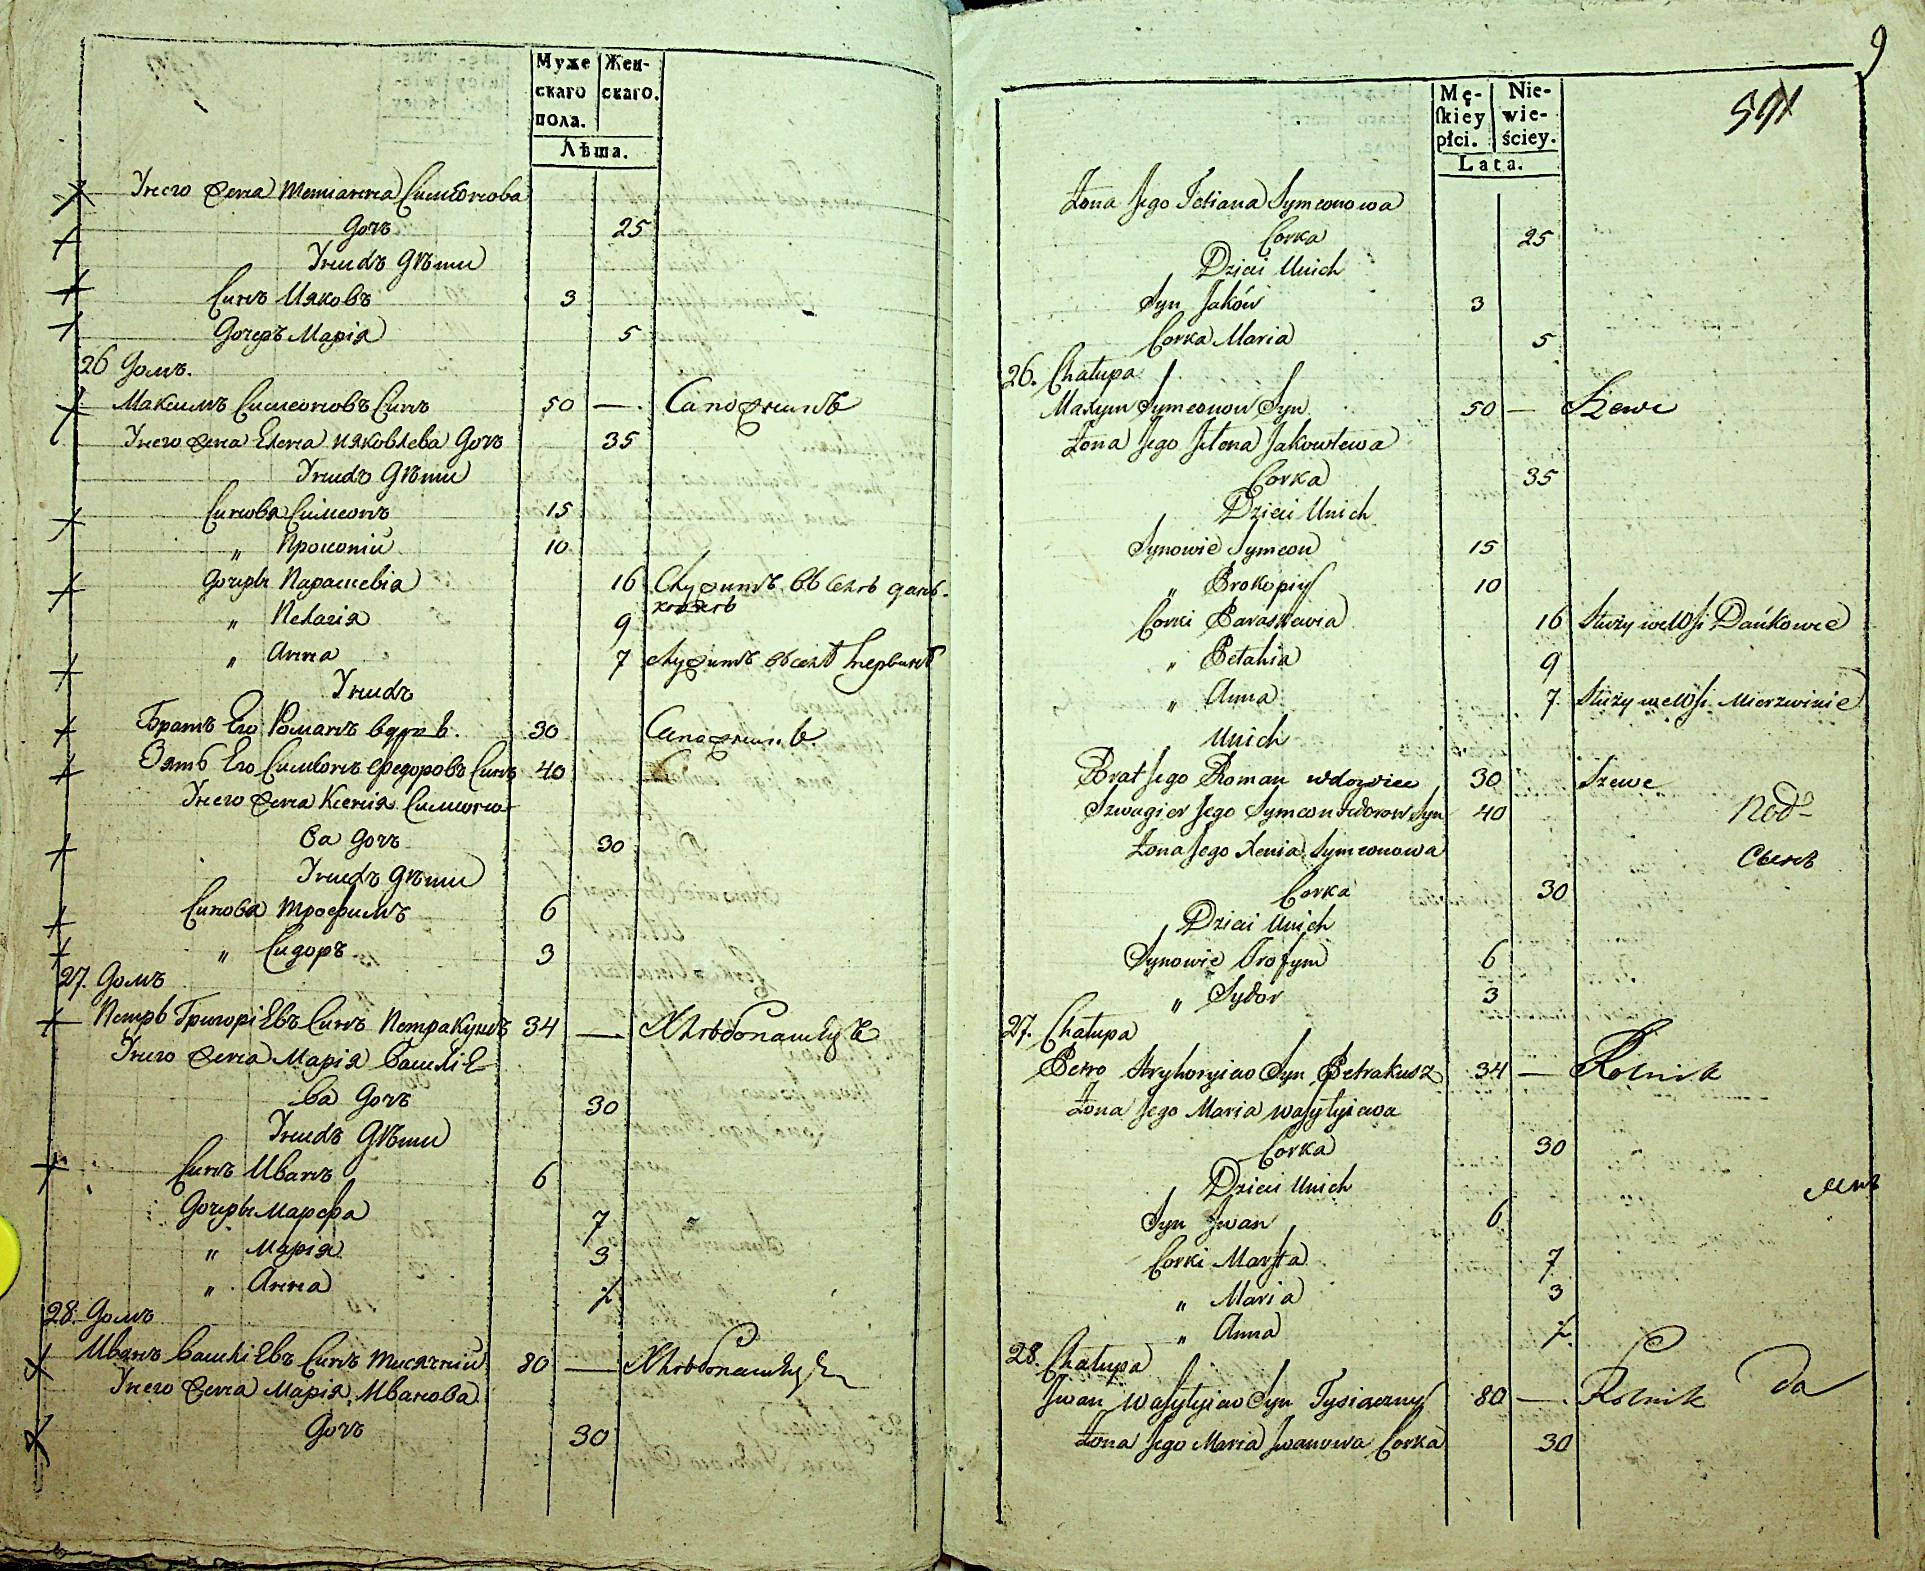 Муже
скаго
пола.
Жен-
скаго.
Лѣта.
Унего жена Татианна Симеонова
дочъ 25
Унихъ дѣти
Синъ Іяковъ 3
дочеръ Марія 5
26 домъ.
Максимъ Симеоновъ Синъ 50 — Сапожникъ
Унего жена Елена Ияковлева дочъ 35
Унихъ дѣти
Синовя Симеонъ 15
„ Прокопій 10
дочеры Параскевіа 16 Служитъ въ селѣ данѣ-
ковѣ
„ Пелагія 9
„ Анна 7 служитъ въ селѣ Мервинѣ
Унихъ
Братъ Его Романъ вдовъ. 30 Сапожникъ.
Зять Его Симеонъ Федоровъ Синъ 40
Унего жена Ксенія Симеоно-
ва дочъ 30
Унихъ дѣти
Синовя Трофимъ 6
„ Сидоръ 3
27. домъ
Петръ Григоріевъ Синъ Петракушъ 34 — Хлѣбопашецъ
Унего жена Марія Василіе-
ва дочъ 30
Унихъ дѣти
Синъ Иванъ 6
дочеры Марфа 7
„ Марія 3
„ Анна ½
28. домъ
Иванъ Василіевъ Синъ Тисячній 80 — Хлѣбопашецъ
Унего жена Марія Иванова
дочъ 30
9
Mę-
skiey
płci.
Nie-
wie-
ściey.
Lata.
591
Żona Jego Tetiana Symeonowa
Corka 25
Dzieci Unich
Syn Jaków 3
Corka Maria 5
26. Chałupa
Maxym Symeonow Syn 50 — Szewc
Żona Jego Jełena Jakowlewa
Corka 35
Dzieci Unich
Synowie Symeon 15
„ Prokopiy 10
Corki Paraskewia 16 Służy we Wsi Dańkowie
„ Pełahia 9
„ Anna 7 Służy we Wsi Mierzwinie
Unich
Brat Jego Roman wdowiec 30 Szewc
Szwagier Jego Symeon Fedorow Syn 40
Żona Jego Xenia Symeonowa
Сынъ
Corka 30
Dzieci Unich
Synowie Trofym 6
„ Sydor 3
27. Chałupa
Petro Hryhoryiew Syn Petrakusz 34 — Rolnik
Żona Jego Maria Wasylyiewa
Corka 30
Dzieci Unich
Syn Iwan 6
Corki Marfta 7
„ Maria 3
„ Anna ½
28. Chałupa
Iwan Wasylyiew Syn Tysiaczny 80 — Rolnik
Żona Jego Maria Iwanowa Corka 30